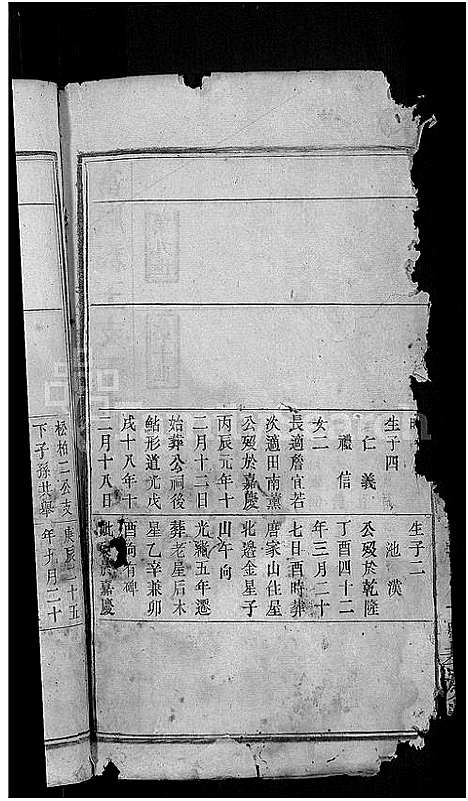 生子四
仁義
禮信
女二
長適詹宜若
次適田南薰
公歿於嘉慶
丙辰元年十
二月十二日
始葬公祠後
鲇形道光戊
戌十八年十
二月十八日
生子二
池漢
公歿於乾隆
丁酉四十二
年三月二十
七日酉時葬
唐家山住星
北邊金星子
山午向
光緒五年遷
葬老屋后木
星乙辛兼卯
酉向有碑
於嘉慶
松柏二公支
下子孫共舉
庚辰二十五
年九月二十